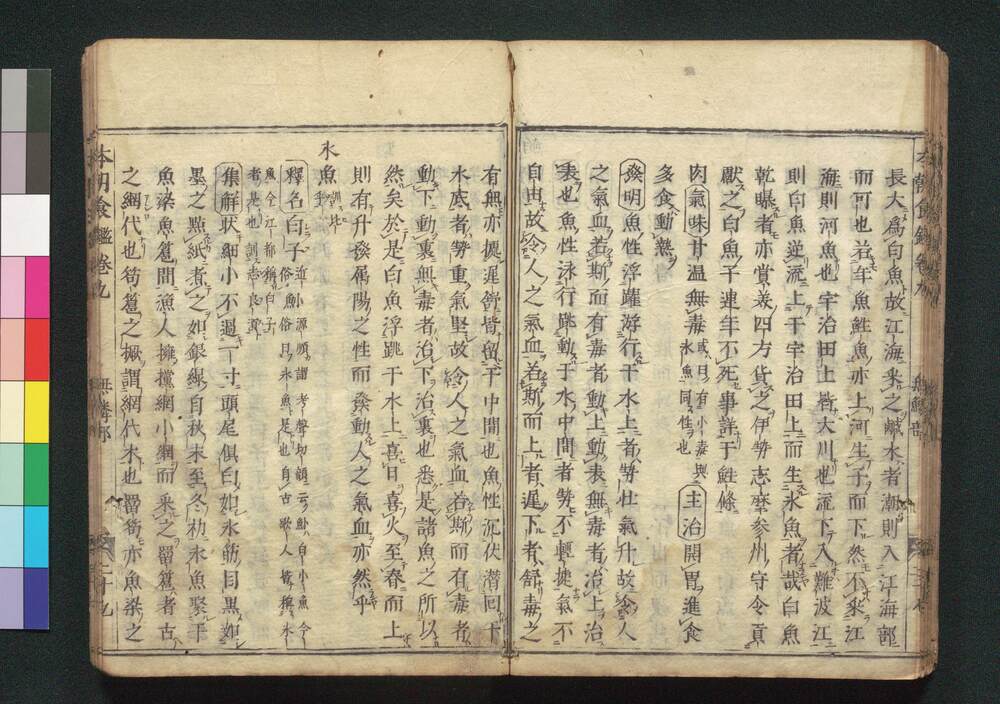 長大爲白魚故江海采之鹹水者潮則入江海部
而可也若年魚鮭魚亦上河生子而下然不采江
海則河魚也宇治田上皆大川也流下入難波江
則白魚逆流上于宇治田上而生氷魚者哉白魚
乾曝者亦賞美四方貨之伊勢志摩参州守令貢
獻之白魚子連年不死事詳于鮭條
肉氣味甘温無毒或曰有小毒與氷魚同性也主治開胃進食
多食動熱
發明魚性浮躍游行于水上者勢壮氣升故令人
之氣血若斯而有毒者動上動表無毒者治上治
表也魚性泳行跳動于水中間者勢不輕揵氣不
自由故令人之氣血若斯而上者遲下者舒毒之
有無亦揵遲舒皆留于中間也魚性沉伏潜回于
水底者勢重氣堅故令人之氣血若斯而有毒者
動下動裏無毒者治下治裏也悉是諸魚之所以
然矣於是白魚浮跳于水上喜日喜火至春而上
則有升發陽之性而發動人之氣血亦然乎
氷魚
釋名白子近小源順謂考聲切韻云白小魚今
俗曰氷魚是也自古歌人皆稱氷
魚今江都稱白子
者是也訓志良
集解狀細小不過一二寸頭尾俱白如氷筋目黒如
墨之點紙煮之如銀線自秋末至冬初氷魚聚于
魚梁魚籞間漁人擁攩網小網而采之留籞者古
之網代也笱籞之概謂網代木也留笱亦魚梁之
本朝食鑑卷九
無鱗部
二十九